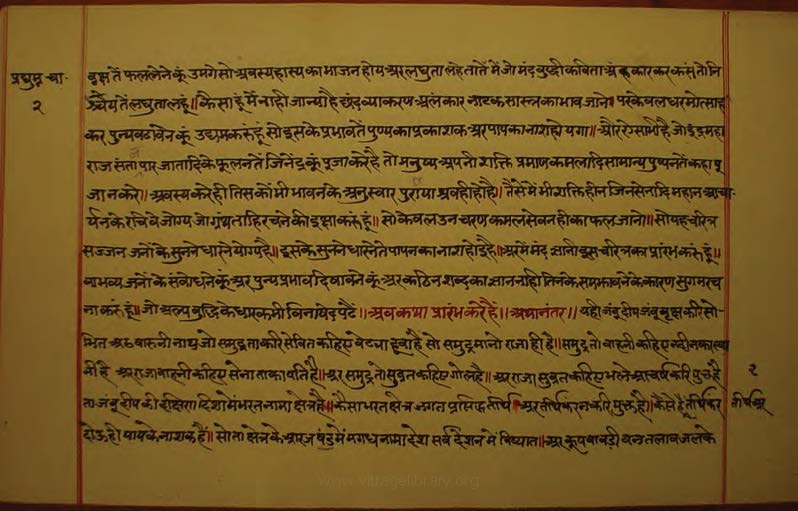 प्रद्युम्न चा॰
२
वृक्ष तें फल लेने कूं उमगे सो अवस्य हास्य का भाजन होय अर लघुता लहे तातें में जो मंद बुद्धी कविता अहंकार कर करूं तो नि
श्चै यतें लघुता लहूं॥ कैसा हूं में नाही जान्यो है छंद व्याकरण अलंकार नाटक सास्त्र का भाव जाने॥ पर केवल धरमोत्साह
कर पुन्य बढावने कूं उद्यम करूं हूं सो इसके प्रभाव तें पुण्य का प्रकाशक अर पाप का नाश हो येगा॥ और ऐसा भी है जो ई द्र महा
राज संता पार जातादि के फूलन तें जिनेंद्र कूं पूजा करे है तो मनुष्य अपनी शक्ति प्रमाण कमलादि सामान्य पुष्पन तें कहा पू
जा न करे॥ अवस्य करे ही तिस कों भी भावन के अनुस्वार पुराया श्रव ही हो है॥ तैसे में भी शक्ति हीन जिनसेनादि महान आचा
र्यन के रचि वे जोग्य जो ग्रंथ ताहि रचने की इक्षा करूं हूं॥ सो केवल उन चरण कमल सेवन ही का फल जानो॥ सो यह चरित्र
सज्जन जनों के सुनने धारने योग्य है॥ इसके सुनने धारने तें पापन का नाश होई है॥ अर में मंद ज्ञानी इस चरित्र का प्रारंभ करूं हूं॥
वा भव्य जनों के संबोधने कूं अर पुन्य प्रभाव दिखावने कूं अर कठिन शब्द का ज्ञान नाही तिन के समझावने के कारण सुगम रच
ना करूं हूं॥ जो अल्प बुद्धि के धारक भी विना षेद पढें॥ अब कथा प्रारंभ करे हैं॥ अथानंतर॥ यही जंबू दीप जंबू वृक्ष करि सो-
भित अर वारुनी नाथ जो समुद्र ता करि सेवित कहिए वेट्या हूवा है सो समुद्र मानो राजा ही है॥ समुद्र तो वाहनी कहिए नदी न का स्वा
मी है अर राजा वाहनी कहिए सेना ता का पति है॥ अर समुद्र तो सुव्रत कहिए गोल है॥ अर राजा सुव्रत कहिए भले आचर्ण करि युक्त है
२
ता जंबू दीप की दक्षिण दिशा में भरत नामा क्षेत्र है॥ कैसा भरत क्षेत्र जगत प्रसिद्ध तीर्थ अर तीर्थंकरन करि युक्त है॥ कैसे है तीर्थंकर
तीर्थ अर
दोऊ ही पाप के नाशक हैं॥ सो ता क्षेत्र के आरज षंड में मगध नामा देश सर्व देशन में विष्यात॥ अर कूप वावड़ी वन तलाव जल के
www.vitragelibrary.org